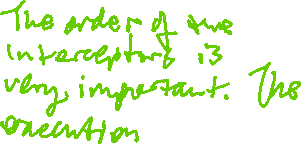 The order of the
interceptors is
very, important. The
execution